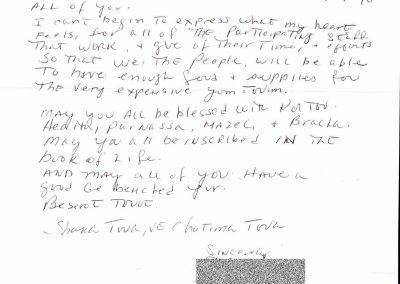 ALL of you.
I can't begin to express what my heart
Feels, for all of THE Participating Staff
That WORK, + give of Their Time, + efforts
So That we, The People, will be able
To have enough food + supplies for
The very expensive yom Tovim.
May you All be blessed with Kol Tov.
Health, Parnassa, MAZEL, + Bracha.
May you all be inscribed IN THE
book of Life.
AND may all of you Have a
good Ge benched yur.
Besorot Tovot.
Shana Tova, VE Chatima Tova
Sincerely